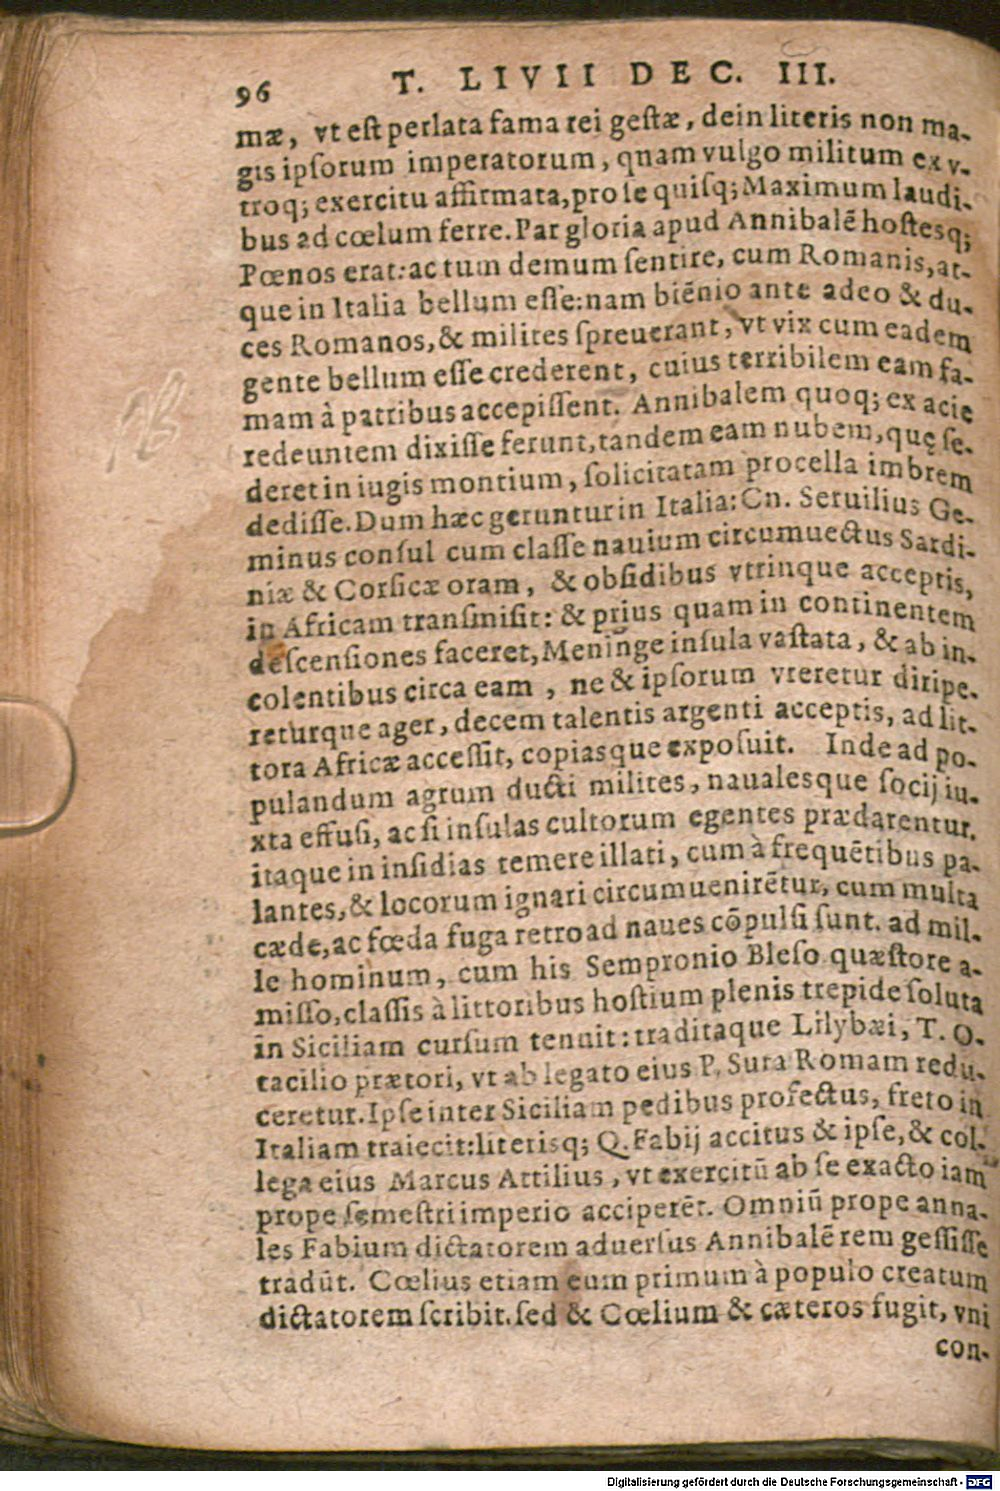 96 T. LIVII DEC. III.
mæ, vt est perlata fama rei gestæ, dein literis non ma-
gis ipsorum imperatorum, quam vulgo militum ex v-
troq; exercitu affirmata, pro se quisq; Maximum laudi-
bus ad cœlum ferre. Par gloria apud Annibalē hostesq;
Pœnos erat: ac tum demum sentire, cum Romanis, at-
que in Italia bellum esse: nam biēnio ante adeo & du-
ces Romanos, & milites spreuerant, vt vix cum eadem
gente bellum esse crederent, cuius terribilem eam fa-
mam à patribus accepissent. Annibalem quoq; ex acie
redeuntem dixisse ferunt, tandem eam nubem, quę se-
deret in iugis montium, solicitatam procella imbrem
dedisse. Dum hæc geruntur in Italia: Cn. Seruilius Ge-
minus consul cum classe nauium circumuectus Sardi-
niæ & Corsicæ oram, & obsidibus vtrinque acceptis,
in Africam transmisit: & prius quam in continentem
descensiones faceret, Meninge insula vastata, & ab in-
colentibus circa eam, ne & ipsorum vreretur diripe-
returque ager, decem talentis argenti acceptis, ad lit-
tora Africæ accessit, copiasque exposuit. Inde ad po-
pulandum agrum ducti milites, naualesque socij iu-
xta effusi, ac si insulas cultorum egentes prædarentur.
itaque in insidias temere illati, cum à frequētibus pa-
lantes, & locorum ignari circumuenirētur, cum multa
cæde, ac fœda fuga retro ad naues cōpulsi sunt. ad mil-
le hominum, cum his Sempronio Bleso quæstore a-
misso, classis à littoribus hostium plenis trepide soluta
in Siciliam cursum tenuit: traditaque Lilybæi, T. O-
tacilio prætori, vt ab legato eius P. Sura Romam redu-
ceretur. Ipse inter Siciliam pedibus profectus, freto in
Italiam traiecit: literisq; Q. Fabij accitus & ipse, & col-
lega eius Marcus Attilius, vt exercitū ab se exacto iam
prope semestri imperio acciperēt. Omniū prope anna-
les Fabium dictatorem aduersus Annibalē rem gessisse
tradūt. Cœlius etiam eum primum à populo creatum
dictatorem scribit. sed & Cœlium & cæteros fugit, vni
con-
Digitalisierung gefördert durch die Deutsche Forschungsgemeinschaft - DFG